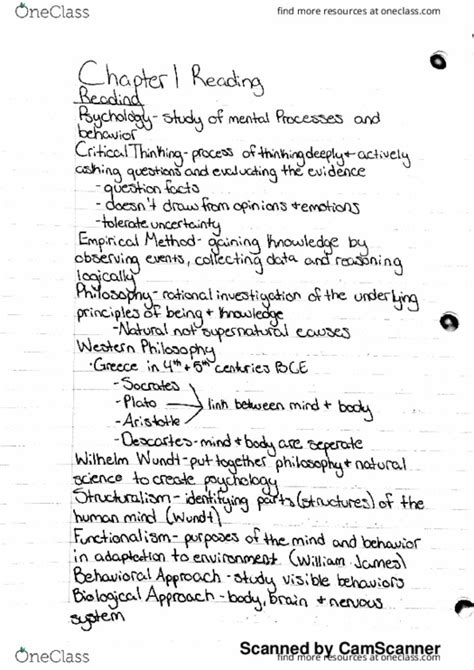 OneClass
find more resources at oneclass.com
Chapter 1 Reading
Reading
Psychology- study of mental Processes and
behavior
Critical Thinking- process of thinking deeply + actively
asking questions and evaluating the evidence
- question facts
- doesn't draw from opinions + emotions
- tolerate uncertainty
Empirical Method- gaining knowledge by
observing events, collecting data and reasoning
logically
Philosophy- rational investigation of the underlying
principles of being + knowledge
- Natural not supernatural causes
Western Philosophy
· Greece in 4th + 5th centuries BCE
- Socrates
- Plato → link between mind + body
- Aristotle
- Descartes- mind + body are seperate
Wilhelm Wundt- put together philosophy + natural
science to create psychology
Structuralism - identifying parts (structures) of the
human mind (Wundt)
Functionalism- purposes of the mind and behavior
in adaptation to environment (William James)
Behavioral Approach - study visible behaviors
Biological Approach - body, brain + nervous
system
Scanned by CamScanner
OneClass
find more resources at oneclass.com